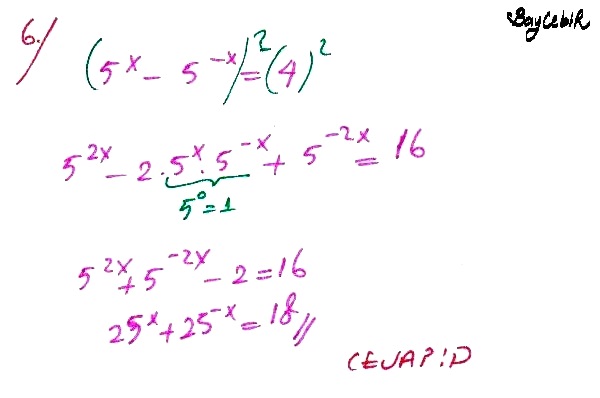 BayCebiR
6./ (5^x - 5^-x)^2 = (4)^2
5^2x - 2 . 5^x . 5^-x + 5^-2x = 16
5^0 = 1
5^2x + 5^-2x - 2 = 16
25^x + 25^-x = 18 //
CEVAP : D